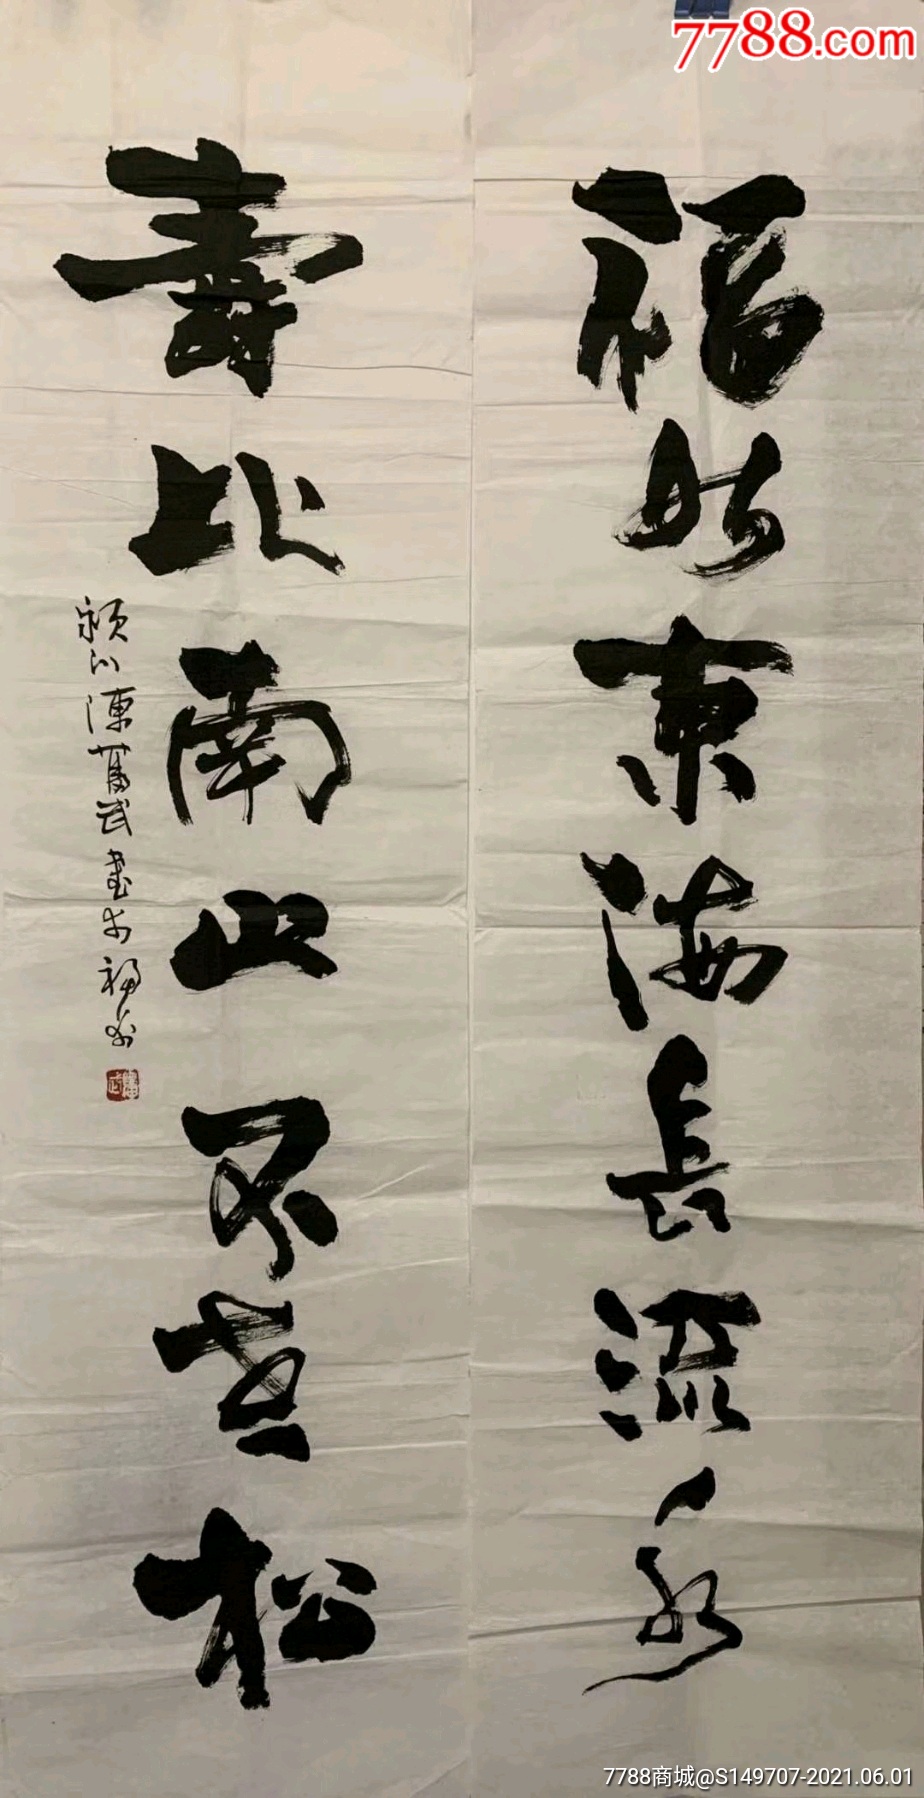 7788.com
福如东海長流水
壽比南山不老松
颍川陳舊武書於福州
7788商城@S149707-2021.06.01